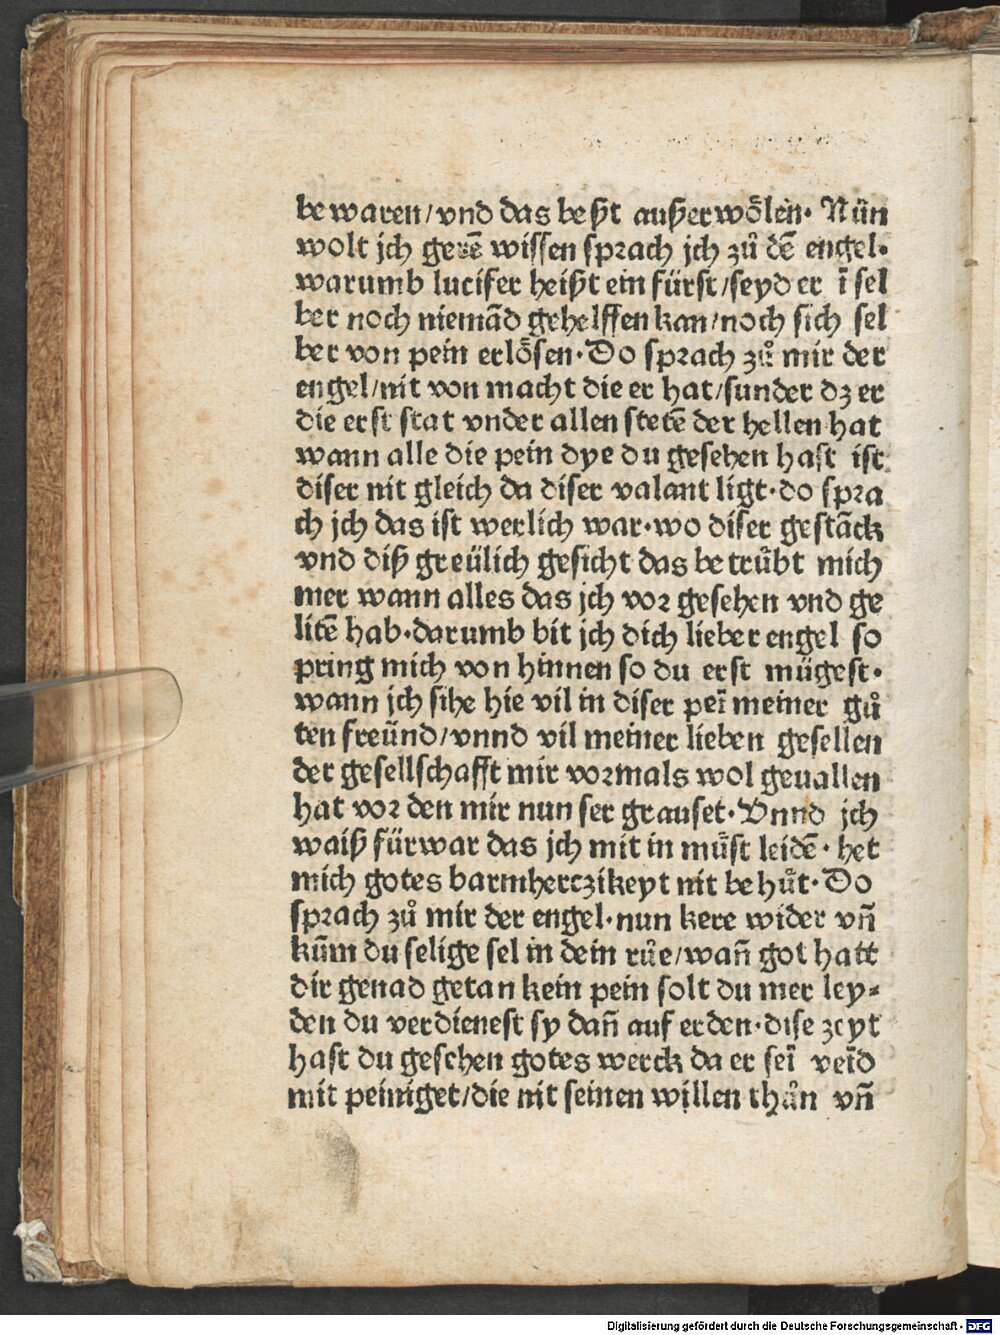 be waren/vnd das beßt außerwoͤlen· Nuͤn
wolt jch gerē wissen sprach jch zuͦ dē engel·
warumb lucifer heißt ein fürst/seyd er ī sel
ber noch niemād gehelffen kan/noch sich sel
ber von pein erloͤsen· Do sprach zuͦ mir der
engel/nit von macht die er hat/sunder dz er
die erst stat vnder allen stetē der hellen hat
wann alle die pein dye du gesehen hast ist
diser nit gleich da diser valant ligt· do spra
ch jch das ist werlich war· wo diser gestāck
vnd diß greülich gesicht das be truͤbt mich
mer wann alles das jch vor gesehen vnd ge
litē hab· darumb bit jch dich lieber engel so
pring mich von hinnen so du erst mügest·
wann jch sihe hie vil in diser peī meiner guͦ
ten freünd/vnnd vil meiner lieben gesellen
der gesellschafft mir vormals wol geuallen
hat vor den mir nun ser grauset· Vnnd jch
waiß fürwar das jch mit in muͤst leidē· het
mich gotes barmherczikeyt nit be huͤt· Do
sprach zuͦ mir der engel· nun kere wider vn̄
kūm du selige sel in dein ruͦe/wan̄ got hatt
dir genad getan kein pein solt du mer ley⸗
den du verdienest sy dan̄ auf erden· dise zeyt
hast du gesehen gotes werck da er seī veīd
mit peiniget/die nit seinen willen thuͦn vn̄
Digitalisierung gefördert durch die Deutsche Forschungsgemeinschaft - DFG